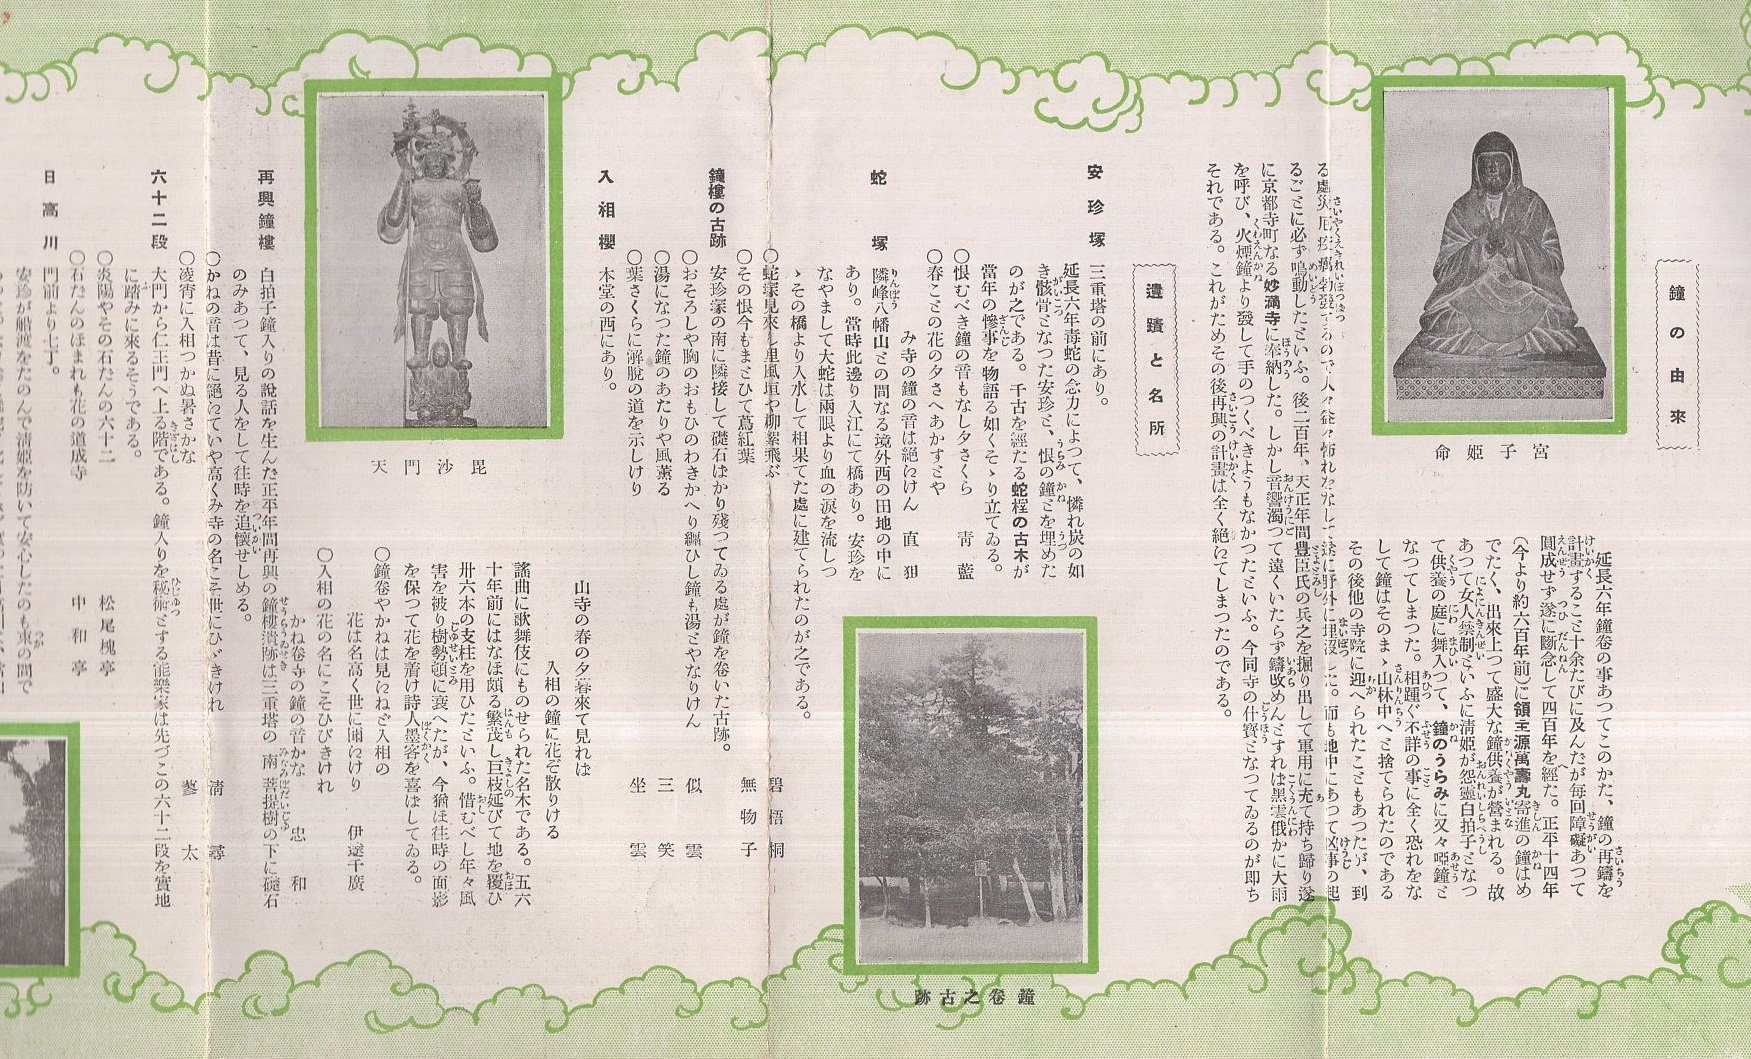 鐘の由來
宮子姫命
延長六年鐘卷の事あつてこのかた、鐘の再鑄を
計畫すること十余たびに及んだが毎回障礙あつて
圓成せず遂に斷念して四百年を經た。正平十四年
(今より約六百年前)に領主源萬壽丸寄進の鐘はめ
でたく、出來上つて盛大な鐘供養が營まれる。故
あつて女人禁制といふに淸姫が怨靈白拍子となつ
て供養の庭に舞入つて、鐘のうらみに又々啞鐘と
なつてしまつた。相踵ぐ不詳の事に全く恐れをな
して鐘はそのまゝ山林中へと捨てられたのである
その後他の寺院に迎へられたこともあつたが、到
る處災厄疫癘続發するので人々益々怖れをなして遂に野外に埋沒した。而も地中にあつて凶事の起
るごとに必ず鳴動したといふ。後二百年、天正年間豊臣氏の兵之を掘り出して軍用に充て持ち歸り遂
に京都寺町なる妙滿寺に奉納した。しかし音響濁つて遠くいたらず鑄改めんとすれは黑雲俄かに大雨
を呼び、火煙鐘より發して手のつくべきようもなかつたといふ。今同寺の什寶となつてゐるのが即ち
それである。これがためその後再興の計畫は全く絕ゑてしまつたのである。
遺蹟と名所
安珍塚
三重塔の前にあり。
延長六年毒蛇の念力によつて、憐れ炭の如
き骸骨となつた安珍と、恨の鐘とを埋めた
のが之である。千古を經たる蛇榁の古木が
當年の慘事を物語る如くそゝり立てゐる。
〇恨むべき鐘の音もなし夕さくら 靑藍
〇春ことの花の夕さへあかすとや
み寺の鐘の音は絕ゑけん 直狙
鐘卷之古跡
蛇塚
隣峰八幡山との間なる境外西の田地の中に
あり。當時此邊り入江にて橋あり。安珍を
なやまして大蛇は兩眼より血の淚を流しつ
ゝその橋より入水して相果てた處に建てられたのが之である。
〇蛇塚見來し里風垣や柳絮飛ぶ 碧梧桐
〇その恨今もまとひて蔦紅葉 無物子
鐘樓の古跡
安珍塚の南に隣接して礎石ばかり殘つてゐる處が鐘を卷いた古跡。
〇おそろしや胸のおもひのわきかへり纒ひし鐘も湯とやなりけん 似雲
〇湯になつた鐘のあたりや風薰る 三笑
〇葉さくらに解脫の道を示しけり 坐雲
入相櫻
本堂の西にあり。
山寺の春の夕暮來て見れは
入相の鐘に花ぞ散りける
謠曲に歌舞伎にものせられた名木である。五六
十年前にはなほ頗る繁茂し巨枝延びて地を覆ひ
卅六本の支柱を用ひたといふ。惜むべし年々風
害を被り樹勢頓に衰へたが、今猶ほ往時の面影
を保つて花を着け詩人墨客を喜ばしてゐる。
〇鐘卷やかねは見ゑねど入相の
花は名高く世に開ゑけり 伊達千廣
〇入相の花の名にこそひびきけれ
かね卷寺の鐘の音かな 忠和
毘沙門天
再興鐘樓
白拍子鐘入りの說話を生んだ正平年間再興の鐘樓潰跡は三重塔の南菩提樹の下に礎石
のみあつて、見る人をして往時を追懷せしめる。
〇かねの音は昔に絕ゑていや高くみ寺の名こそ世にひゞきけれ 淸尋
〇凌霄に入相つかぬ暑さかな 蓼太
六十二段
大門から仁王門へ上る階である。鐘入りを秘術とする能樂家は先づこの六十二段を實地
に踏みに來るそうである。
〇炎陽やその石だんの六十二 松尾槐亭
〇石だんのほまれも花の道成寺 中和亭
日高川
門前より七丁。
安珍が船渡をたのんで淸姫を防いて安心したのも束の間で